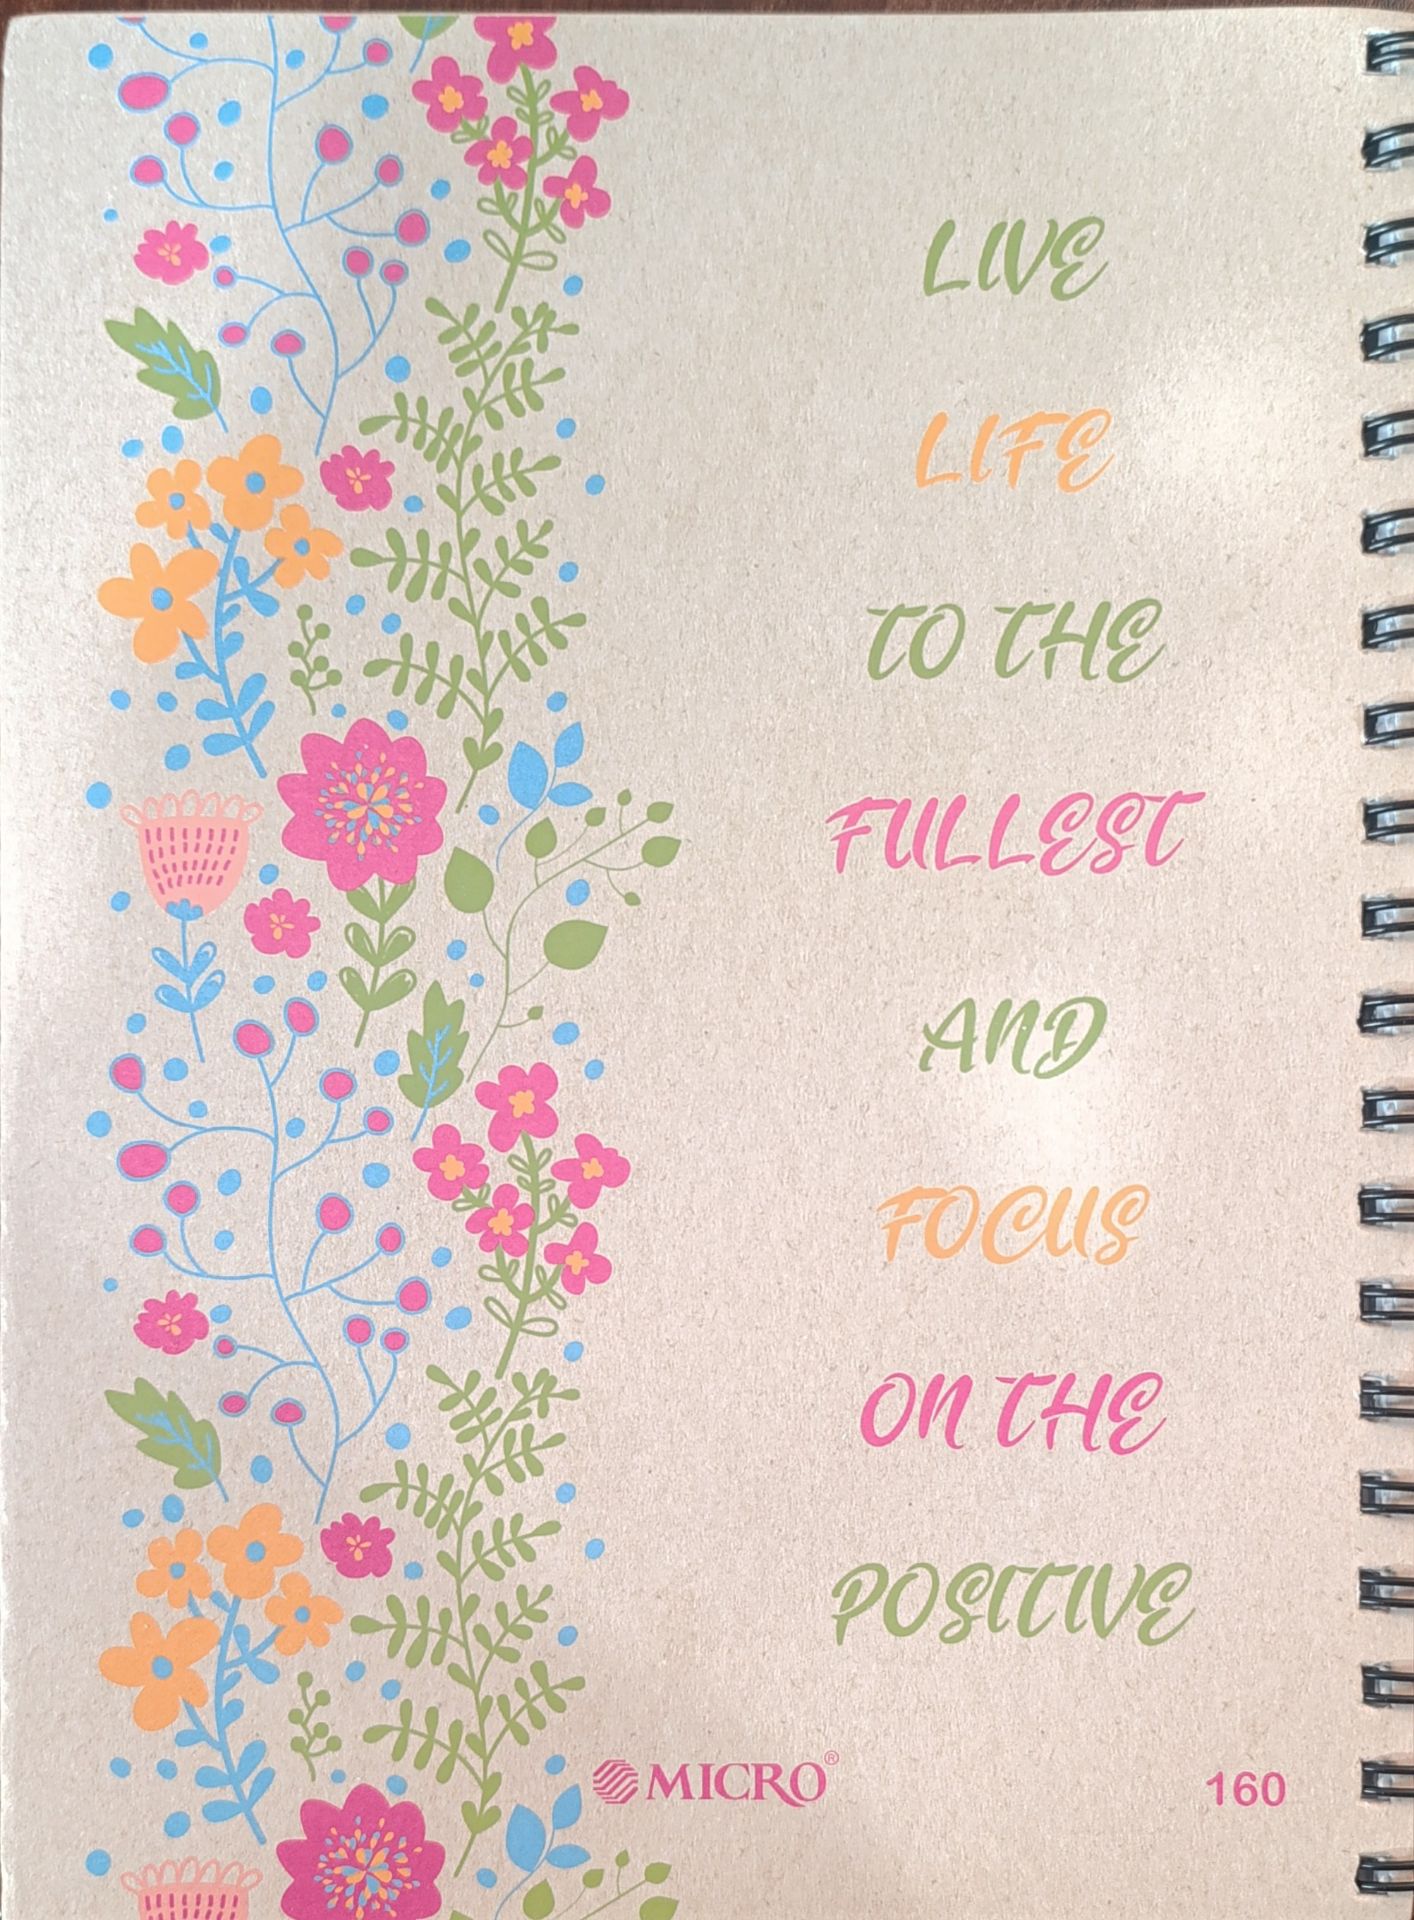 LIVE
LIFE
TO THE
FULLEST
AND
FOCUS
ON THE
POSITIVE
MICRO®
160